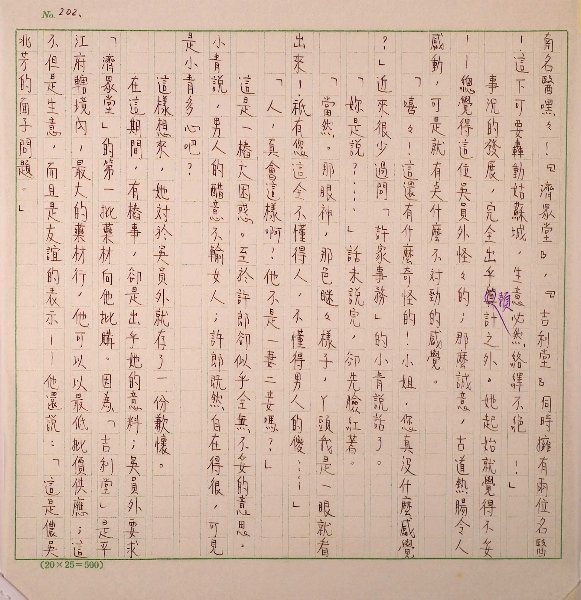 No. 202.
有名醫嘿々！「濟眾堂」，「吉利堂」同時擁有兩位名醫
！這下可要轟動姑蘇城，生意必然絡繹不絕！！」
事況的發展，完全出乎預計之外。她起始就覺得不妥
！！總覺得這位吳員外怪々的；那麼誠意，古道熱腸令人
感動，可是就有莫什麼不對勁的感覺。
「嘻々！這還有什麼奇怪的！小姐，您真沒什麼感覺
？」近來很少過問「許家事務」的小青說話了。
「妳是說？……」話未說完，卻先臉紅著。
「當然。那眼神，那色瞇々樣子，丫頭我是一眼就看
出來！祇有您這全不懂得人，不懂得男人的傻……！」
「人，真會這樣啊！他不是一妻二妾嗎？！」
這是一樁大困惑。至於許郎卻似乎全無不妥的意思。
小青說，男人的醋意不輸女人；許郎既然自在得很，可見
是小青多心吧？
這樣想來，她對於吳員外就存了一份歉懷。
在這期間，有樁事，卻是出乎她的意料；吳員外要求
「濟眾堂」的第一批藥材向他批購。因為「吉利堂」是平
江府轄境內，最大的藥材行，他可以以最低批價供應；這
不但是生意，而且是友誼的表示！！他還說：「這是儂吳
兆芳的面子問題。」
(20×25=500)